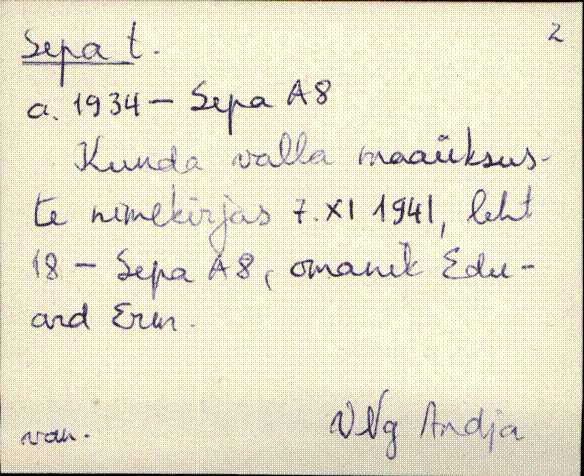 Sepa t. 2
a. 1934 – Sepa A8
Kunda valla maaüksus-
te nimekirjas 7. XI 1941, leht
18 – Sepa A8, omanik Edu-
ard Erm.
van. VNg Andja